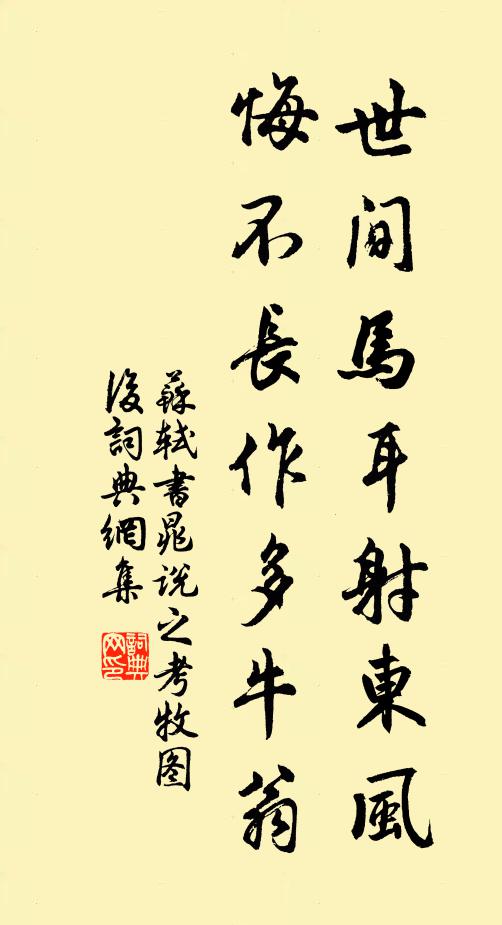 世間馬耳射東風
悔不長作多牛翁
蘇軾書晁說之考牧图
後詞典網集
詞典
网印